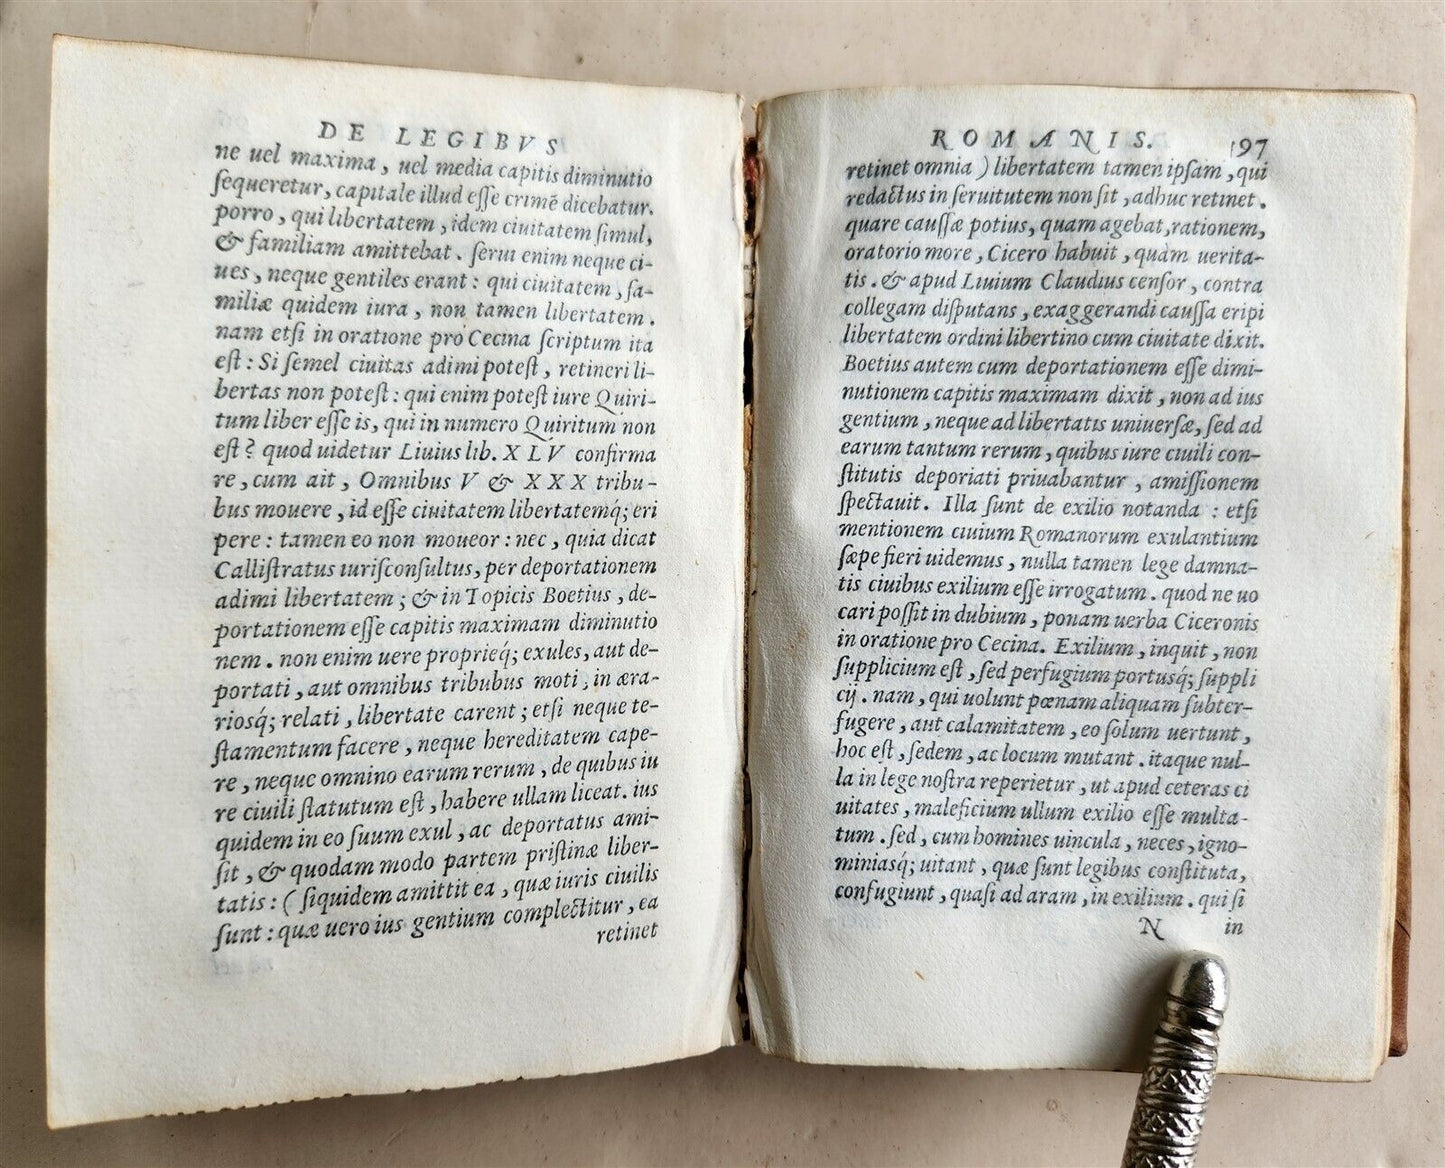 DE LEGIBVS
ne uel maxima, uel media capitis diminutio
ſequeretur, capitale illud eſſe crimẽ dicebatur.
porro, qui libertatem, idem ciuitatem ſimul,
& familiam amittebat. ſerui enim neque ci-
ues, neque gentiles erant: qui ciuitatem, fa-
miliæ quidem iura, non tamen libertatem.
nam etſi in oratione pro Cecina ſcriptum ita
eſt: Si ſemel ciuitas adimi poteſt, retineri li-
bertas non poteſt: qui enim poteſt iure Quiri-
tum liber eſſe is, qui in numero Quiritum non
eſt? quod uidetur Liuius lib. XLV confirma
re, cum ait, Omnibus V & XXX tribu-
bus mouere, id eſſe ciuitatem libertatemq́; eri
pere: tamen eo non moueor: nec, quia dicat
Calliſtratus iuriſconſultus, per deportationem
adimi libertatem; & in Topicis Boetius, de-
portationem eſſe capitis maximam diminutio
nem. non enim uere proprieq́; exules, aut de-
portati, aut omnibus tribubus moti, in æra-
riosq́; relati, libertate carent; etſi neque te-
ſtamentum facere, neque hereditatem cape-
re, neque omnino earum rerum, de quibus iu
re ciuili ſtatutum eſt, habere ullam liceat. ius
quidem in eo ſuum exul, ac deportatus ami-
ſit, & quodam modo partem priſtinæ liber-
tatis: (ſiquidem amittit ea, quæ iuris ciuilis
ſunt: quæ uero ius gentium complectitur, ea
retinet
ROMANIS. 97
retinet omnia) libertatem tamen ipſam, qui
redactus in ſeruitutem non ſit, adhuc retinet.
quare cauſſæ potius, quam agebat, rationem,
oratorio more, Cicero habuit, quàm uerita-
tis. & apud Liuium Claudius cenſor, contra
collegam diſputans, exaggerandi cauſſa eripi
libertatem ordini libertino cum ciuitate dixit.
Boetius autem cum deportationem eſſe dimi-
nutionem capitis maximam dixit, non ad ius
gentium, neque ad libertatis uniuerſæ, ſed ad
earum tantum rerum, quibus iure ciuili con-
ſtitutis deporiati priuabantur, amiſſionem
ſpectauit. Illa ſunt de exilio notanda: etſi
mentionem ciuium Romanorum exulantium
ſæpe fieri uidemus, nulla tamen lege damna-
tis ciuibus exilium eſſe irrogatum. quod ne uo
cari poſſit in dubium, ponam uerba Ciceronis
in oratione pro Cecina. Exilium, inquit, non
ſupplicium eſt, ſed perfugium portusq́; ſuppli
cij. nam, qui uolunt pœnam aliquam ſubter-
fugere, aut calamitatem, eo ſolum uertunt,
hoc eſt, ſedem, ac locum mutant. itaque nul-
la in lege noſtra reperietur, ut apud ceteras ci
uitates, maleficium ullum exilio eſſe multa-
tum. ſed, cum homines uincula, neces, igno-
miniasq́; uitant, quæ ſunt legibus conſtituta,
confugiunt, quaſi ad aram, in exilium. qui ſi
N in